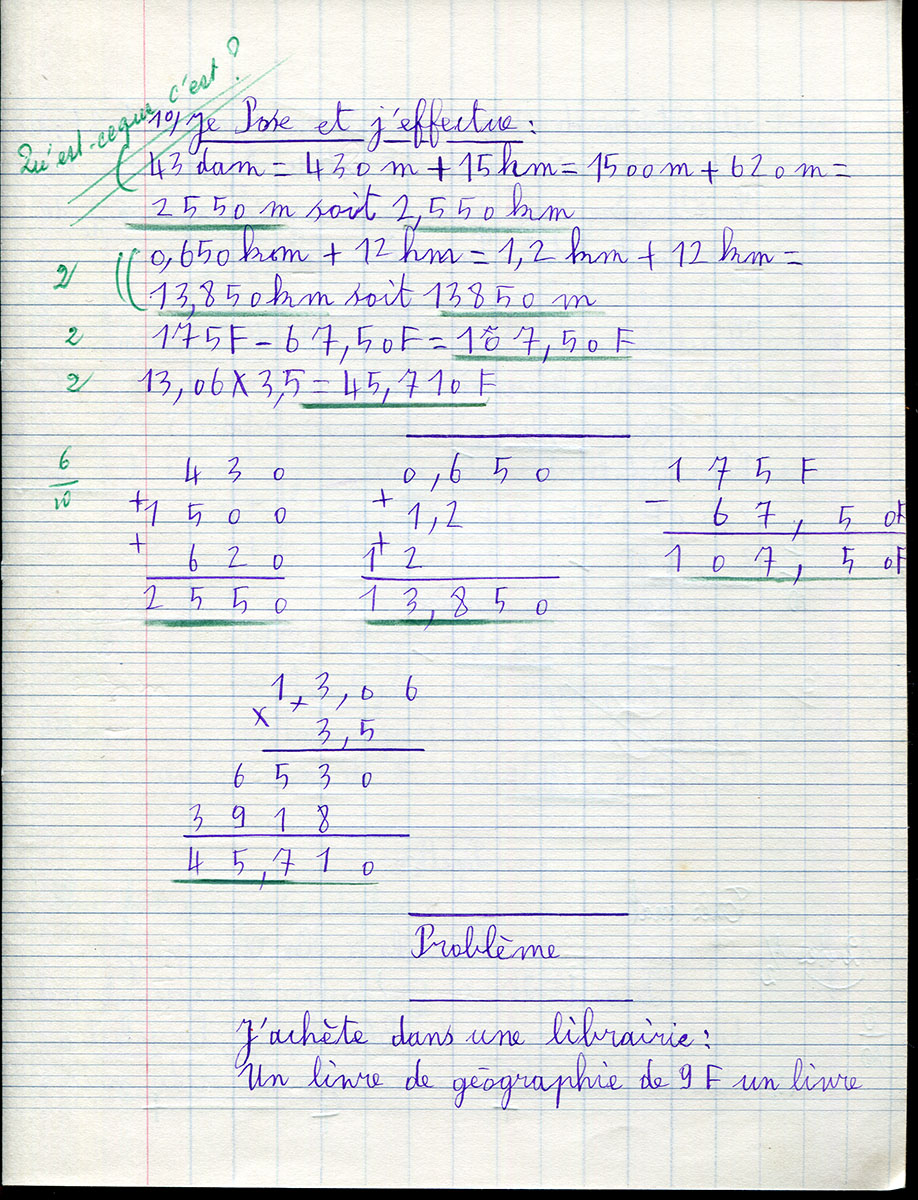 Qu'est-ceque c'est ?
1º, Je Pose et j'effectue :
43 dam = 430 m + 15 hm = 1500 m + 620 m =
2550 m soit 2,550 km
2 0,650 km + 12 hm = 1,2 km + 12 km =
13,850 km soit 13850 m
2 175F - 67,50F = 107,50F
2 13,06 x 3,5 = 45,710 F
6/10
430
+ 1500
+ 620
2550
0,650
+ 1,2
+ 12
13,850
175F
- 67,50F
107,50F
13,06
x 3,5
6530
3918
45,710
Problème
J'achète dans une librairie :
Un livre de géographie de 9 F un livre